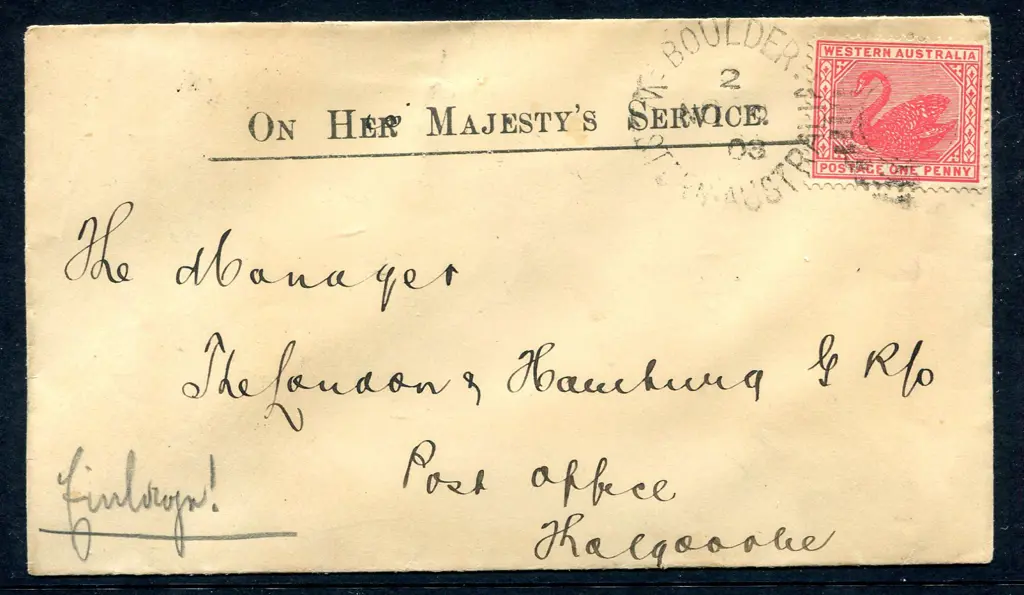 BOULDER
2
NO
03
WESTERN AUSTRALIA
POSTAGE ONE PENNY
ON HER MAJESTY'S SERVICE.
The Manager
The London & Hamburg G R/o
Post Office
Kalgoorlie